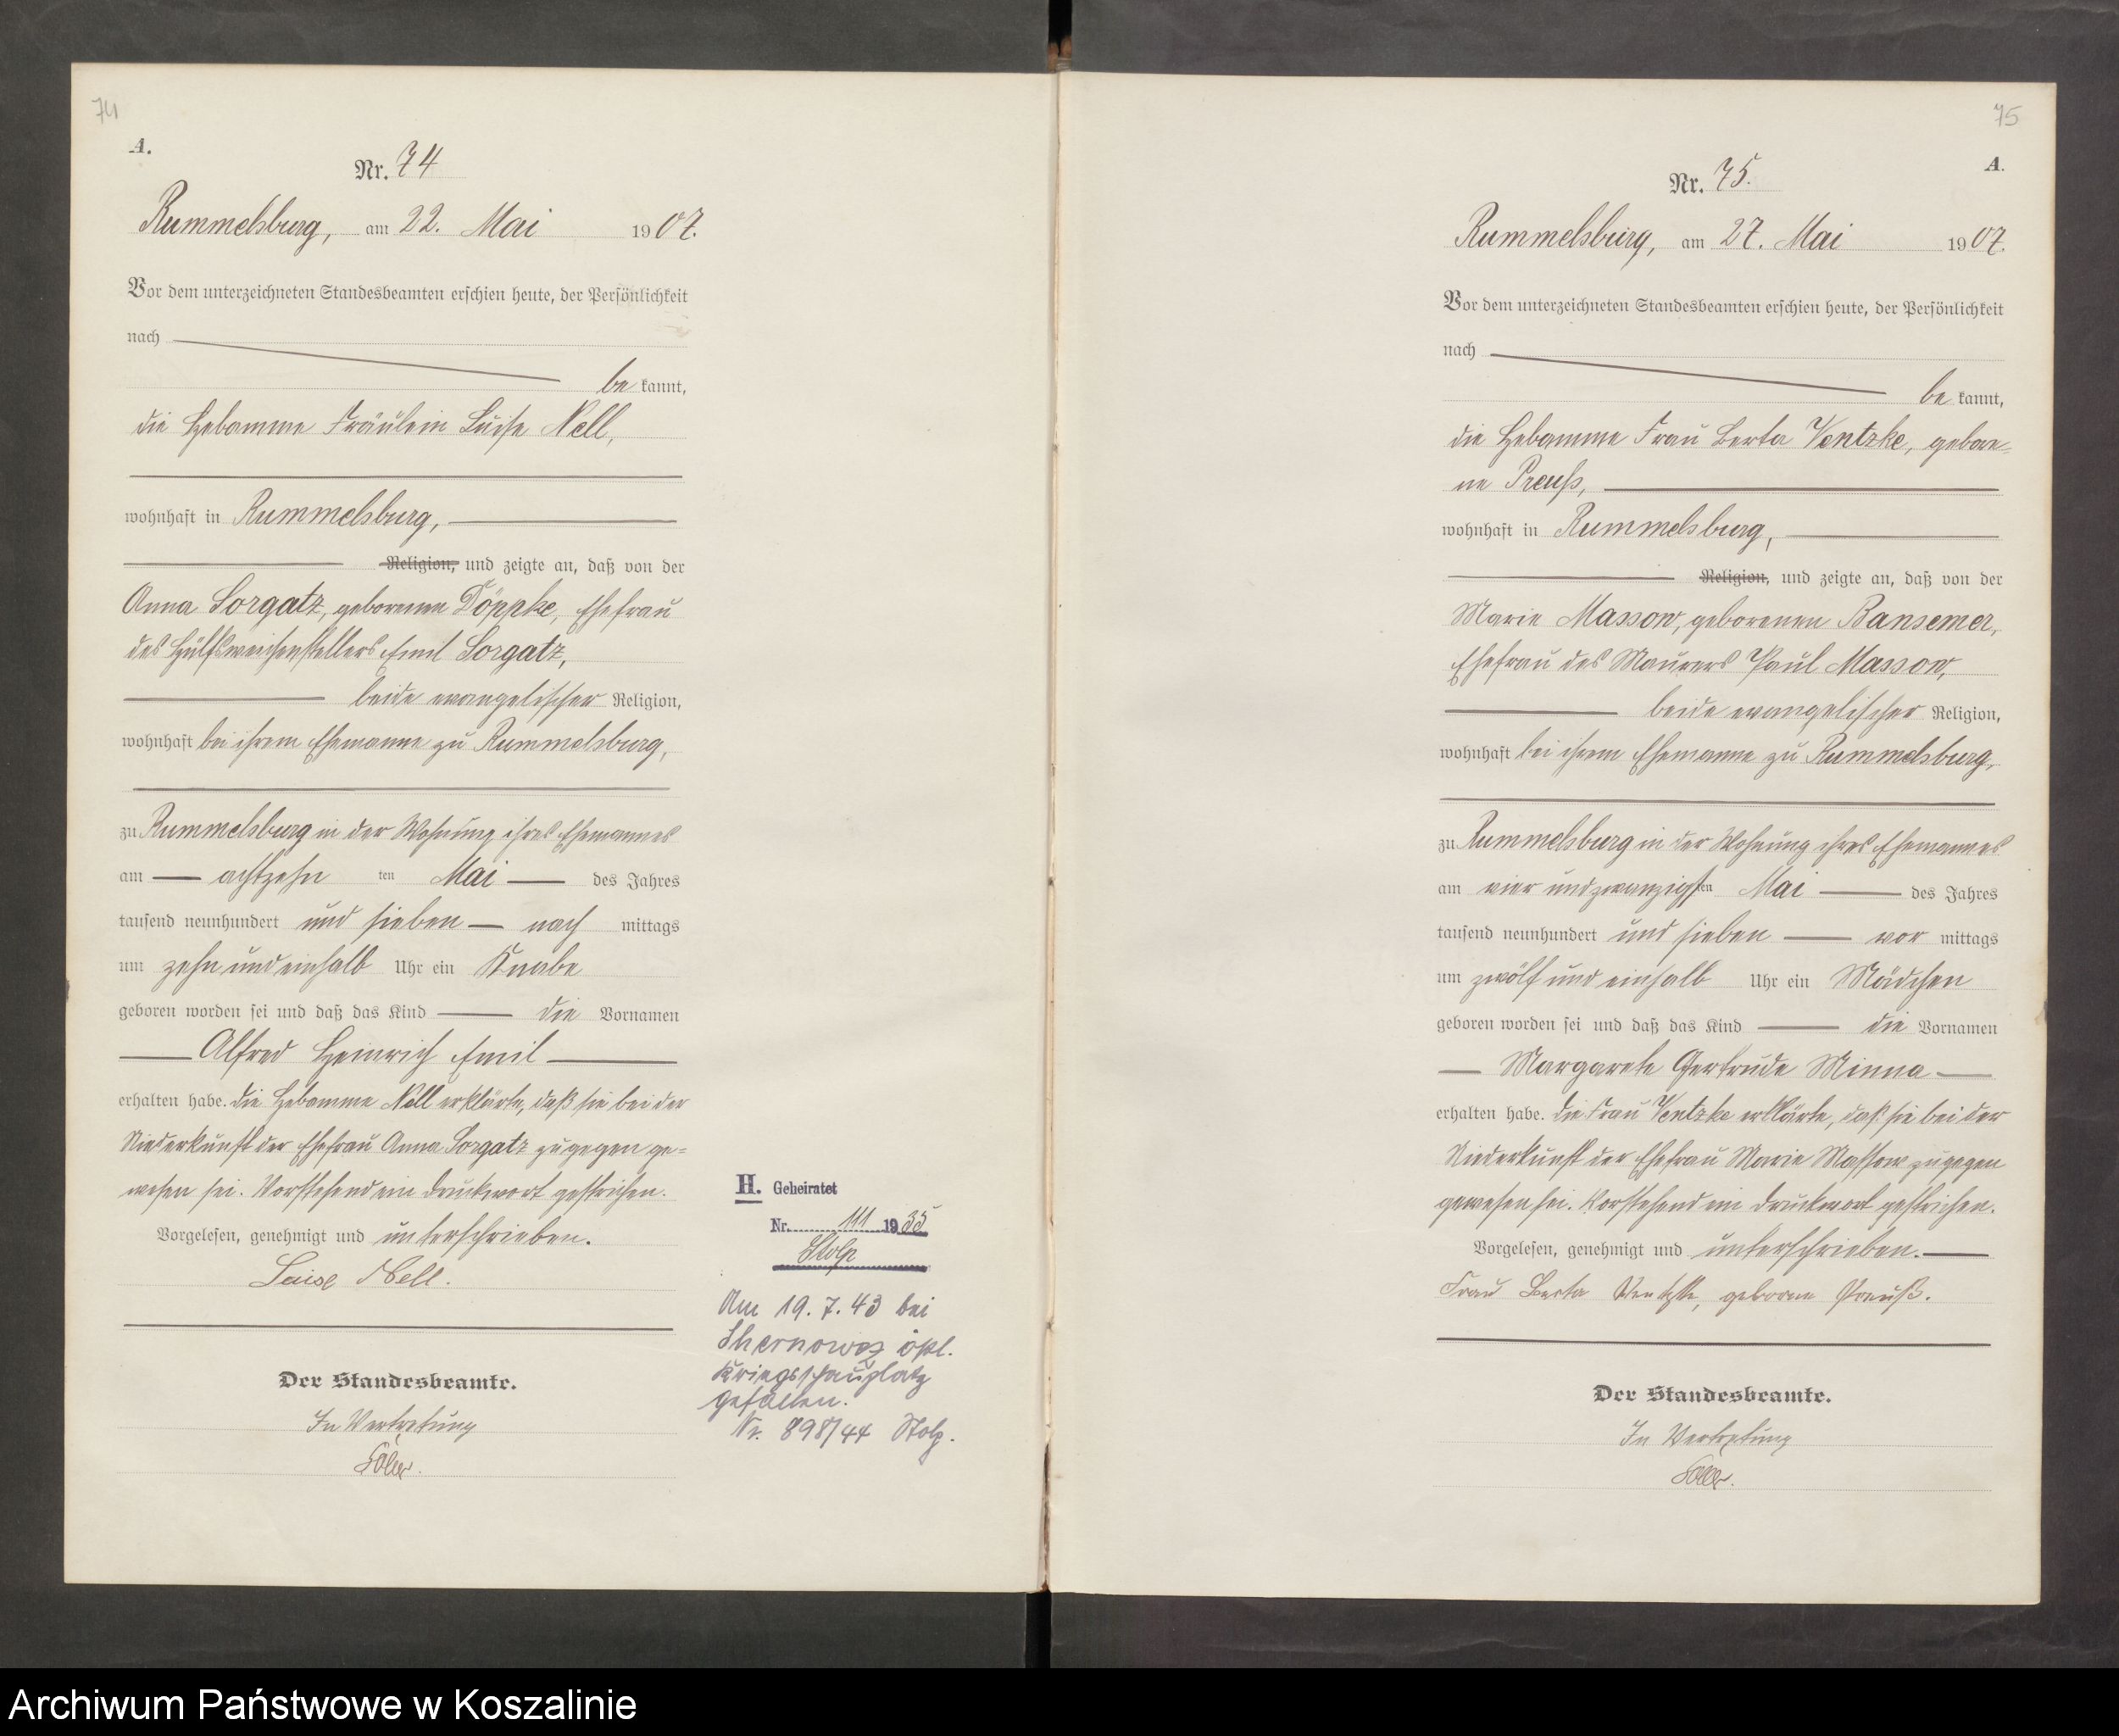 74
A.
Nr. 74
Rummelsburg, am 22. Mai 1907.
Vor dem unterzeichneten Standesbeamten erschien heute, der Persönlichkeit
nach
be kannt,
die Hebamme Fräulein Luise Nell,
wohnhaft in Rummelsburg,
Religion, und zeigte an, daß von der
Anna Sorgatz, geborenen Döppke, Ehefrau
des Hülfsweichenstellers Emil Sorgatz,
beide evangelischer Religion,
wohnhaft bei ihrem Ehemanne zu Rummelsburg,
zu Rummelsburg in der Wohnung ihres Ehemannes
am achtzehn ten Mai des Jahres
tausend neunhundert und sieben nach mittags
um zehn und einhalb Uhr ein Knabe
geboren worden sei und daß das Kind die Vornamen
Alfred Heinrich Emil
erhalten habe. Die Hebamme Nell erklärte, daß sie bei der
Niederkunft der Ehefrau Anna Sorgatz zugegen ge=
wesen sei. Vorstehend ein Druckwort gestrichen.
Vorgelesen, genehmigt und unterschrieben.
Luise Nell.
Der Standesbeamte.
In Vertretung
H. Geheiratet
Nr. 111 1935
Stolp
Am 19. 7. 43 bei
östl.
Kriegsschauplatz
gefallen.
Nr. 898/44 Stolp.
75
A.
Nr. 75.
Rummelsburg, am 27. Mai 1907.
Vor dem unterzeichneten Standesbeamten erschien heute, der Persönlichkeit
nach
be kannt,
die Hebamme Frau Berta Ventzke, gebore=
ne Preuß,
wohnhaft in Rummelsburg,
Religion, und zeigte an, daß von der
Marie Massow, geborenen Bansemer,
Ehefrau des Maurers Paul Massow,
beide evangelischer Religion,
wohnhaft bei ihrem Ehemanne zu Rummelsburg,
zu Rummelsburg in der Wohnung ihres Ehemannes
am vier und zwanzigsten Mai des Jahres
tausend neunhundert und sieben vor mittags
um zwölf und einhalb Uhr ein Mädchen
geboren worden sei und daß das Kind die Vornamen
Margarete Gertrude Minna
erhalten habe. Die Frau Ventzke erklärte, daß sie bei der
Niederkunft der Ehefrau Marie Massow zugegen
gewesen sei. Vorstehend ein Druckwort gestrichen.
Vorgelesen, genehmigt und unterschrieben.
Frau Berta Ventzke, geborne Preuß.
Der Standesbeamte.
In Vertretung
Archiwum Państwowe w Koszalinie